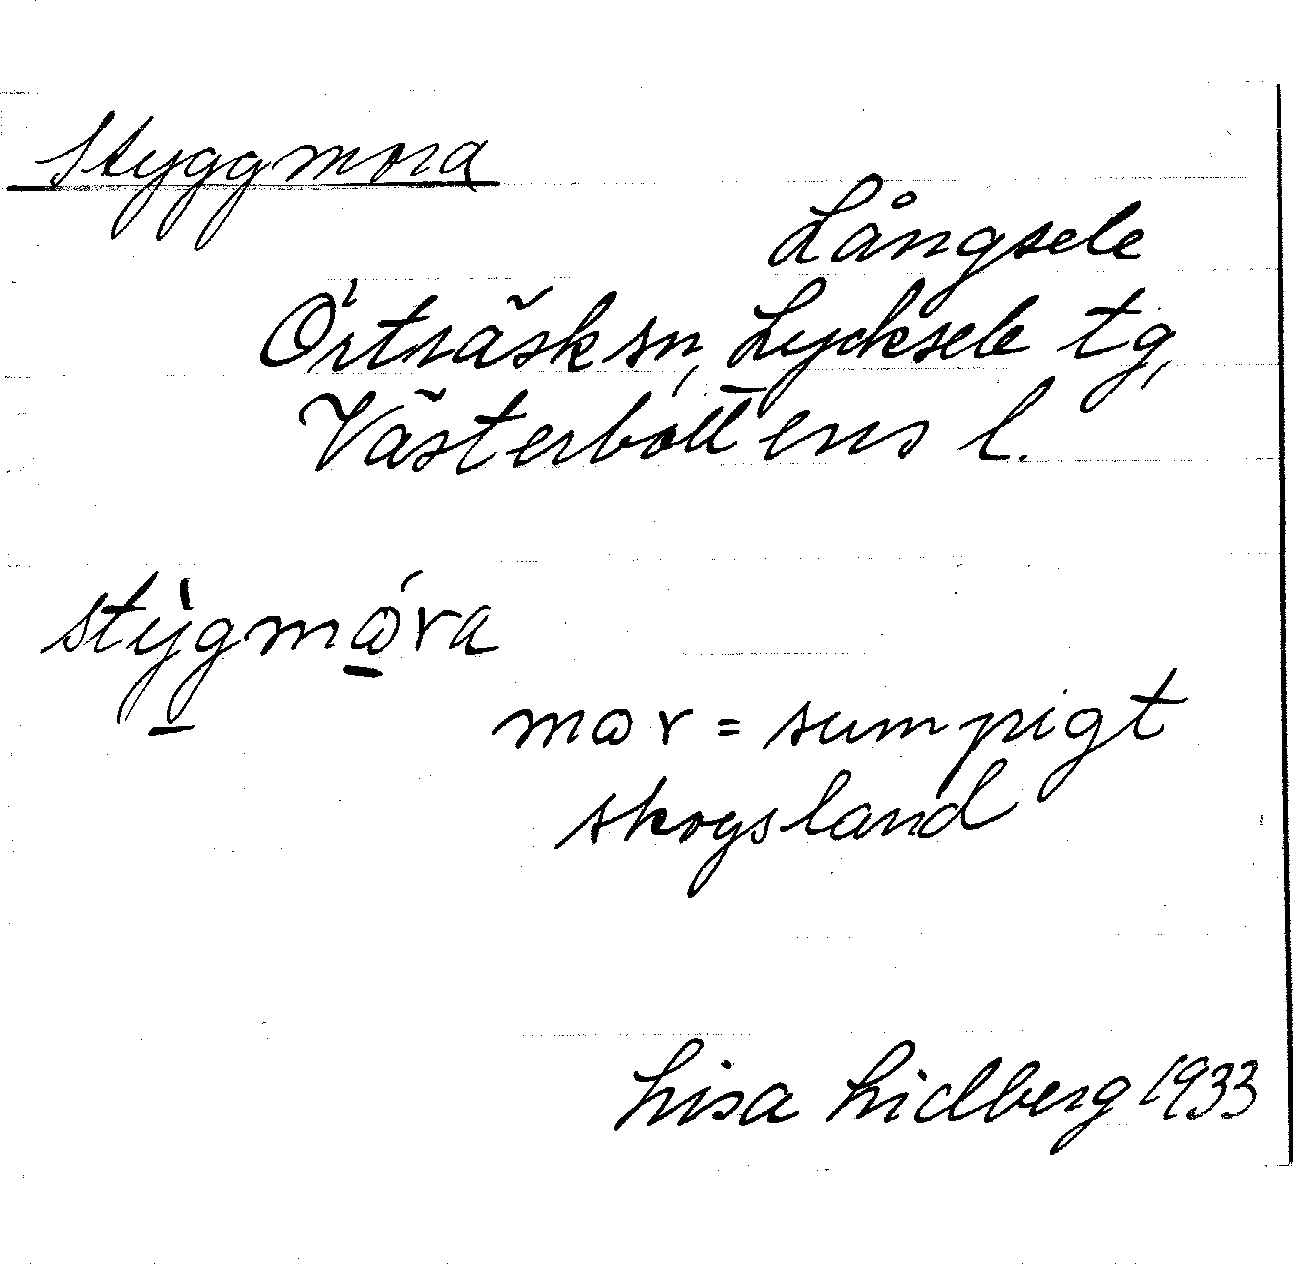 Styggmora
Långsele
Örträsk sn, Lycksele tg,
Västerbottens l.
stỳ̱gmώ̱ra
mωr = sumpigt
skogsland
Lisa Lidberg 1933